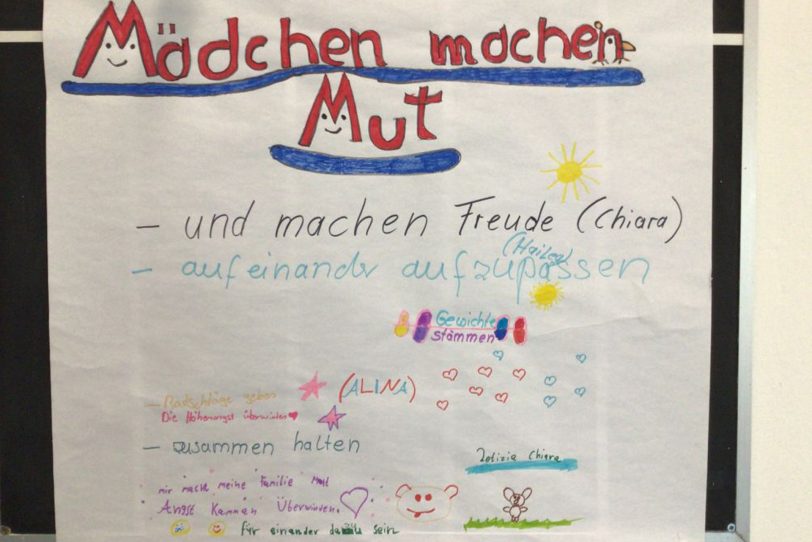 Mädchen machen
Mut
- und machen Freude (Chiara)
(Hailey)
- aufeinander aufzupassen
Gewichte
stämmen
- Ratschläge geben
(ALINA)
Die Höhenangst überwinden
- zusammen halten
Letizia Chiara
mir macht meine Familie Mut
Angst Kannan Überwinden.
für einander da sein